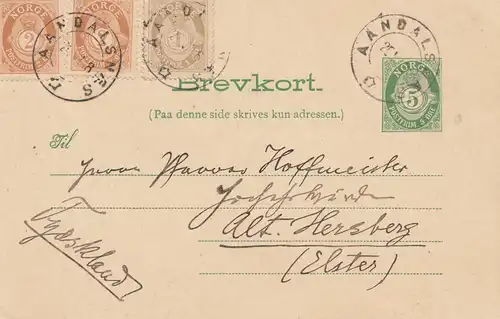 NORGE NORGE NORGE
2 1
AANDALSNES
AANDALSNES
Brevkort.
(Paa denne side skrives kun adressen.)
NORGE
5
POSTFRIM 5 ØRE
Til
Herrn Pfarrer Hoffmeister
Hochehrwürden
Alt. Hersberg
(Elster)
Tydskland